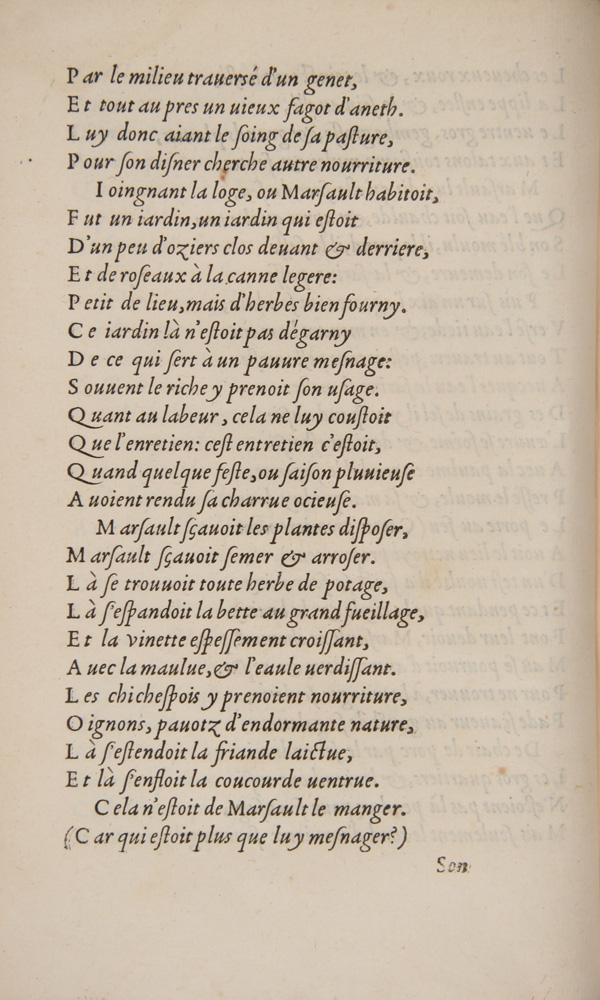 Par le milieu trauersé d'un genet,
Et tout au pres un uieux fagot d'aneth.
Luy donc aiant le ſoing de ſa paſture,
Pour ſon diſner cherche autre nourriture.
Ioingnant la loge, ou Marſault habitoit,
Fut un iardin, un iardin qui eſtoit
D'un peu d'oziers clos deuant & derriere,
Et de roſeaux à la canne legere:
Petit de lieu, mais d'herbes bien fourny.
Ce iardin là n'eſtoit pas dégarny
De ce qui ſert à un pauure meſnage:
Souuent le riche y prenoit ſon uſage.
Quant au labeur, cela ne luy couſtoit
Que l'enretien: ceſt entretien c'eſtoit,
Quand quelque feſte, ou ſaiſon pluuieuſe
Auoient rendu ſa charrue ocieuſe.
Marſault ſçauoit les plantes diſpoſer,
Marſault ſçauoit ſemer & arroſer.
Là ſe trouuoit toute herbe de potage,
Là ſ'eſpandoit la bette au grand fueillage,
Et la vinette eſpeſſement croiſſant,
Auec la maulue, & l'eaule uerdiſſant.
Les chicheſpois y prenoient nourriture,
Oignons, pauotz d'endormante nature,
Là ſ'eſtendoit la friande laictue,
Et là ſ'enfloit la coucourde uentrue.
Cela n'eſtoit de Marſault le manger.
(Car qui eſtoit plus que luy meſnager?)
Son